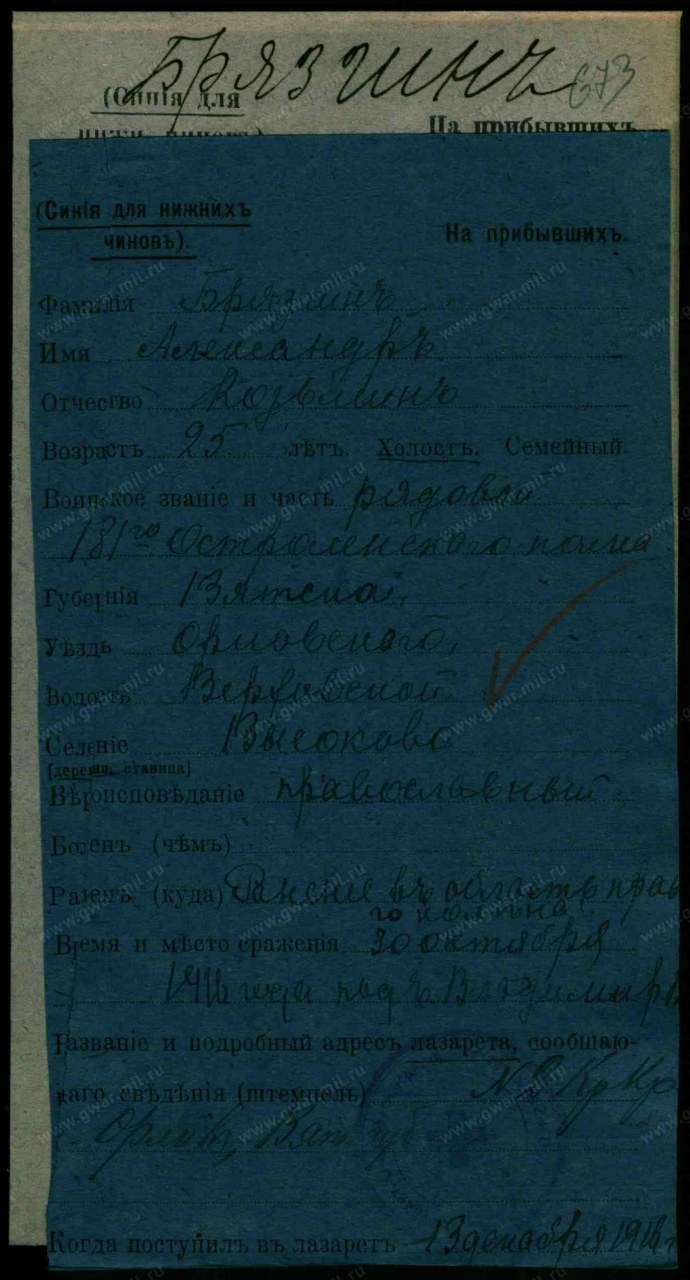 Брязгинъ 673
(Синія для
На прибывшихъ
(Синія для нижнихъ
чиновъ).
На прибывшихъ.
Фамилія Брязгинъ
Имя Александръ
Отчество Козьминъ
Возрастъ 25 лѣтъ. Холостъ. Семейный.
Воинское званіе и часть рядовой
181го Остроленскаго полка
Губернія Вятской,
Уѣздъ Орловского,
Волость
Селеніе Высоково
(деревня, станица)
Вѣроисповѣданіе православный
Боленъ (чѣмъ)
Раненъ (куда) въ область прав
го колѣна
Время и мѣсто сраженія 30 октября
года подъ
Названіе и подробный адресъ лазарета, сообщаю-
щаго свѣдѣнія (штемпель) Кр Кр
Орловъ, Вят. губ
Когда поступилъ въ лазаретъ 13 декабря
www.gwar.mil.ru